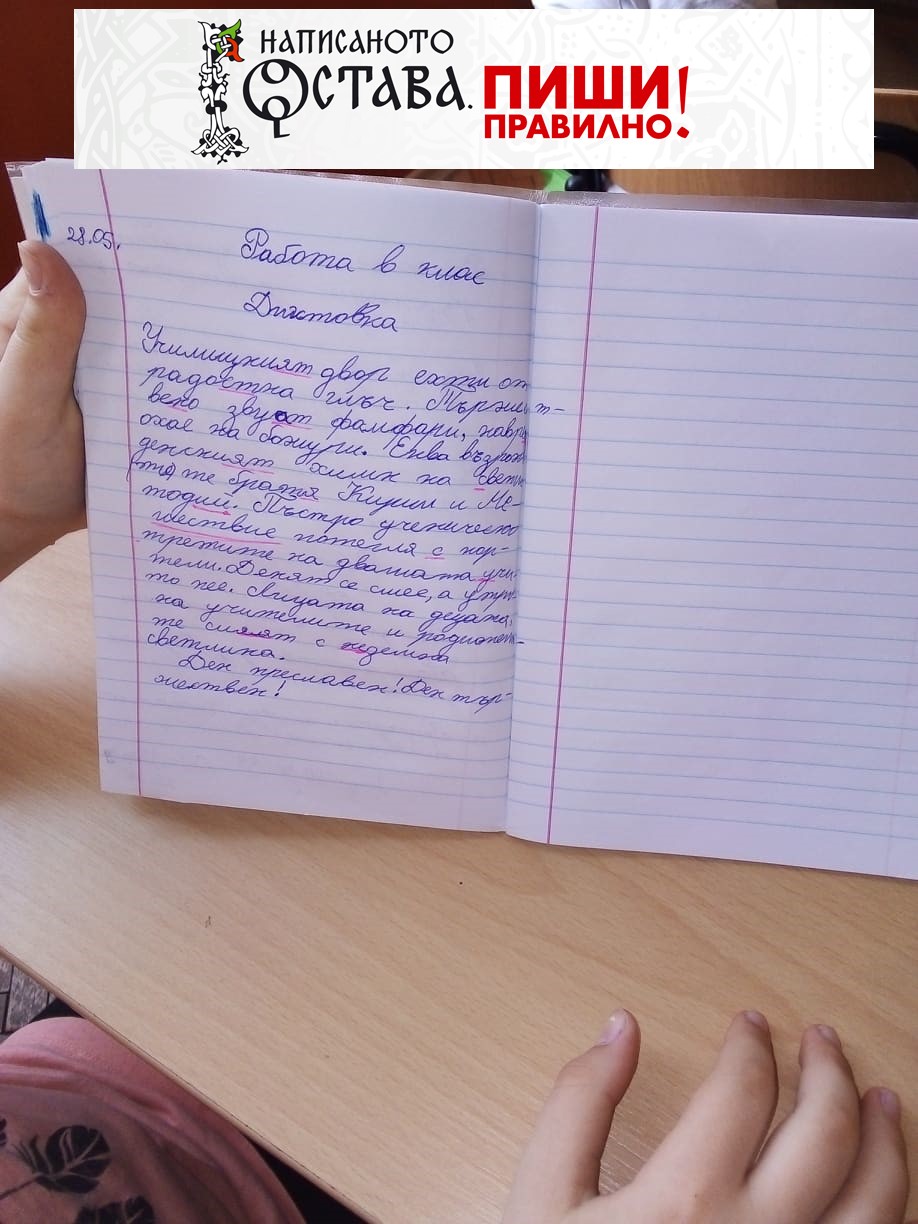 НАПИСАНОТО
ОСТАВА.
ПИШИ
ПРАВИЛНО!
28.05.
Работа в клас
Диктовка
Училищният двор ехти от
радостна глъч. Тържест-
вено звучат фамфари, навря
охае на божури. Еква възрож
денският химн на Свети
те братя Кирил и Ме-
тодий. Пъстро ученическо
шествие потегля с пор-
третите на двамата учи-
тели. Денят се смее, а утро
то пее. Лицата на децата,
на учителите и родители-
те сияят с неземна
светлина.
Ден преславен! Ден тър-
жествен!